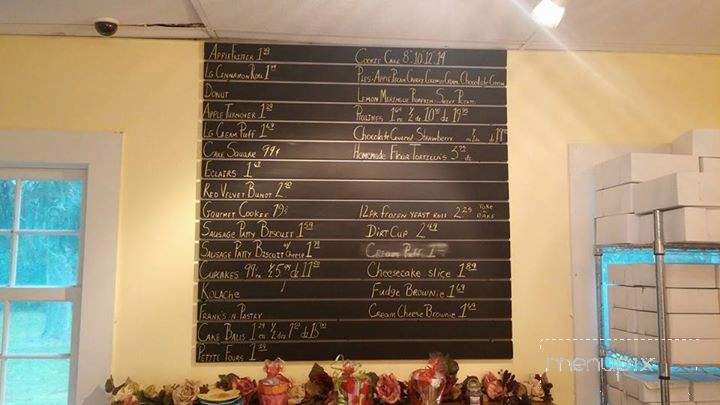 Apple Fritter 1
Lg Cinnamon Roll 1
Donut
Apple Turnover 1
Lg Cream Puff 1
Cake Square 99¢
Eclairs 1
Red Velvet Bundt 2
Gourmet Cookie 79¢
Sausage Patty Biscuit 1.59
Sausage Patty Biscuit w/ Cheese 1
Cupcakes 99¢
Kolache
Frank's n Pastry
Cake Balls 1
Petite Fours 1
Cookie Cake 8" 10" 12" 14"
Pies: Apple Pecan Cherry Coconut Cream, Chocolate Cream
Lemon Meringue Pumpkin Sweet Potato
Pralines 1
Chocolate Covered Strawberry
Homemade Flour Tortilla's 3
12pk Frozen Yeast Roll 2.25 Take n Bake
Dirt Cup 2.49
Cream Puff 1
Cheesecake slice 1.89
Fudge Brownie 1.69
Cream Cheese Brownie 1.69
menupix